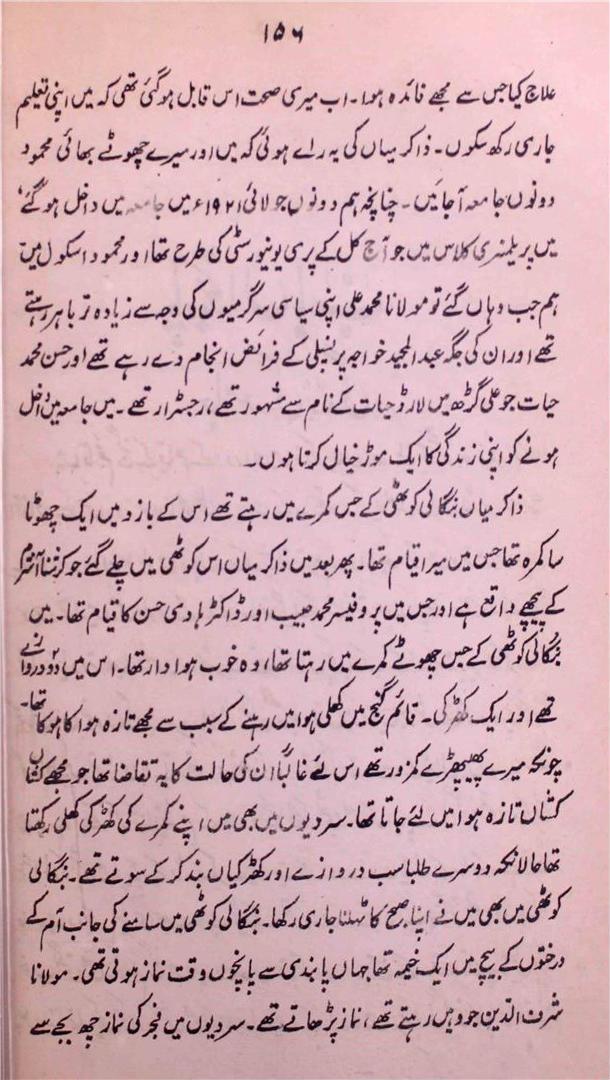 ۱۵۶
علاج کیا جس سے مجھے فائدہ ہوا۔ اب میری صحت اس قابل ہو گئی تھی کہ میں اپنی تعلیم
جاری رکھ سکوں۔ ذاکر میاں کی یہ رائے ہوئی کہ میں اور میرے چھوٹے بھائی محمود
دونوں جامعہ آجائیں۔ چنانچہ ہم دونوں جولائی ۱۹۲۱ء میں جامعہ میں داخل ہو گئے،
میں پریلمنری کلاس میں جو آج کل کے پری یونیورسٹی کی طرح تھا اور محمود اسکول میں
ہم جب وہاں گئے تو مولانا محمد علی اپنی سیاسی سرگرمیوں کی وجہ سے زیادہ تر باہر رہتے
تھے اور ان کی جگہ عبدالمجید خواجہ پرنسپلی کے فرائض انجام دے رہے تھے اور حسن محمد
حیات جو علی گڑھ میں لارڈ حیات کے نام سے مشہور تھے، رجسٹرار تھے۔ میں جامعہ میں داخل
ہونے کو اپنی زندگی کا ایک موڑ خیال کرتا ہوں۔
ذاکر میاں بنگالی کوٹھی کے جس کمرے میں رہتے تھے اس کے بازو میں ایک چھوٹا
سا کمرہ تھا جس میں میرا قیام تھا۔ پھر بعد میں ذاکر میاں اس کوٹھی میں چلے گئے جو کرشنا آشرم
کے پیچھے واقع ہے اور جس میں پروفیسر محمد حبیب اور ڈاکٹر ہادی حسن کا قیام تھا۔ میں
بنگالی کوٹھی کے جس چھوٹے کمرے میں رہتا تھا، وہ خوب ہوادار تھا۔ اس میں دو دروازے
تھے اور ایک کھڑکی۔ قائم گنج میں کھلی ہوا میں رہنے کے سبب سے مجھے تازہ ہوا کا ہوکا تھا۔
چونکہ میرے پھیپھڑے کمزور تھے اس لئے غالباً ان کی حالت کا یہ تقاضا تھا جو مجھے کشاں
کشاں تازہ ہوا میں لئے جاتا تھا۔ سردیوں میں بھی میں اپنے کمرے کی کھڑکی کھلی رکھتا
تھا حالانکہ دوسرے طلبا سب دروازے اور کھڑکیاں بند کر کے سوتے تھے۔ بنگالی
کوٹھی میں بھی میں نے اپنا صبح کا ٹہلنا جاری رکھا۔ بنگالی کوٹھی میں سامنے کی جانب آم کے
درختوں کے بیچ میں ایک خیمہ تھا جہاں پابندی سے پانچوں وقت نماز ہوتی تھی۔ مولانا
شرف الدین جو وہیں رہتے تھے، نماز پڑھاتے تھے۔ سردیوں میں فجر کی نماز چھ بجے سے